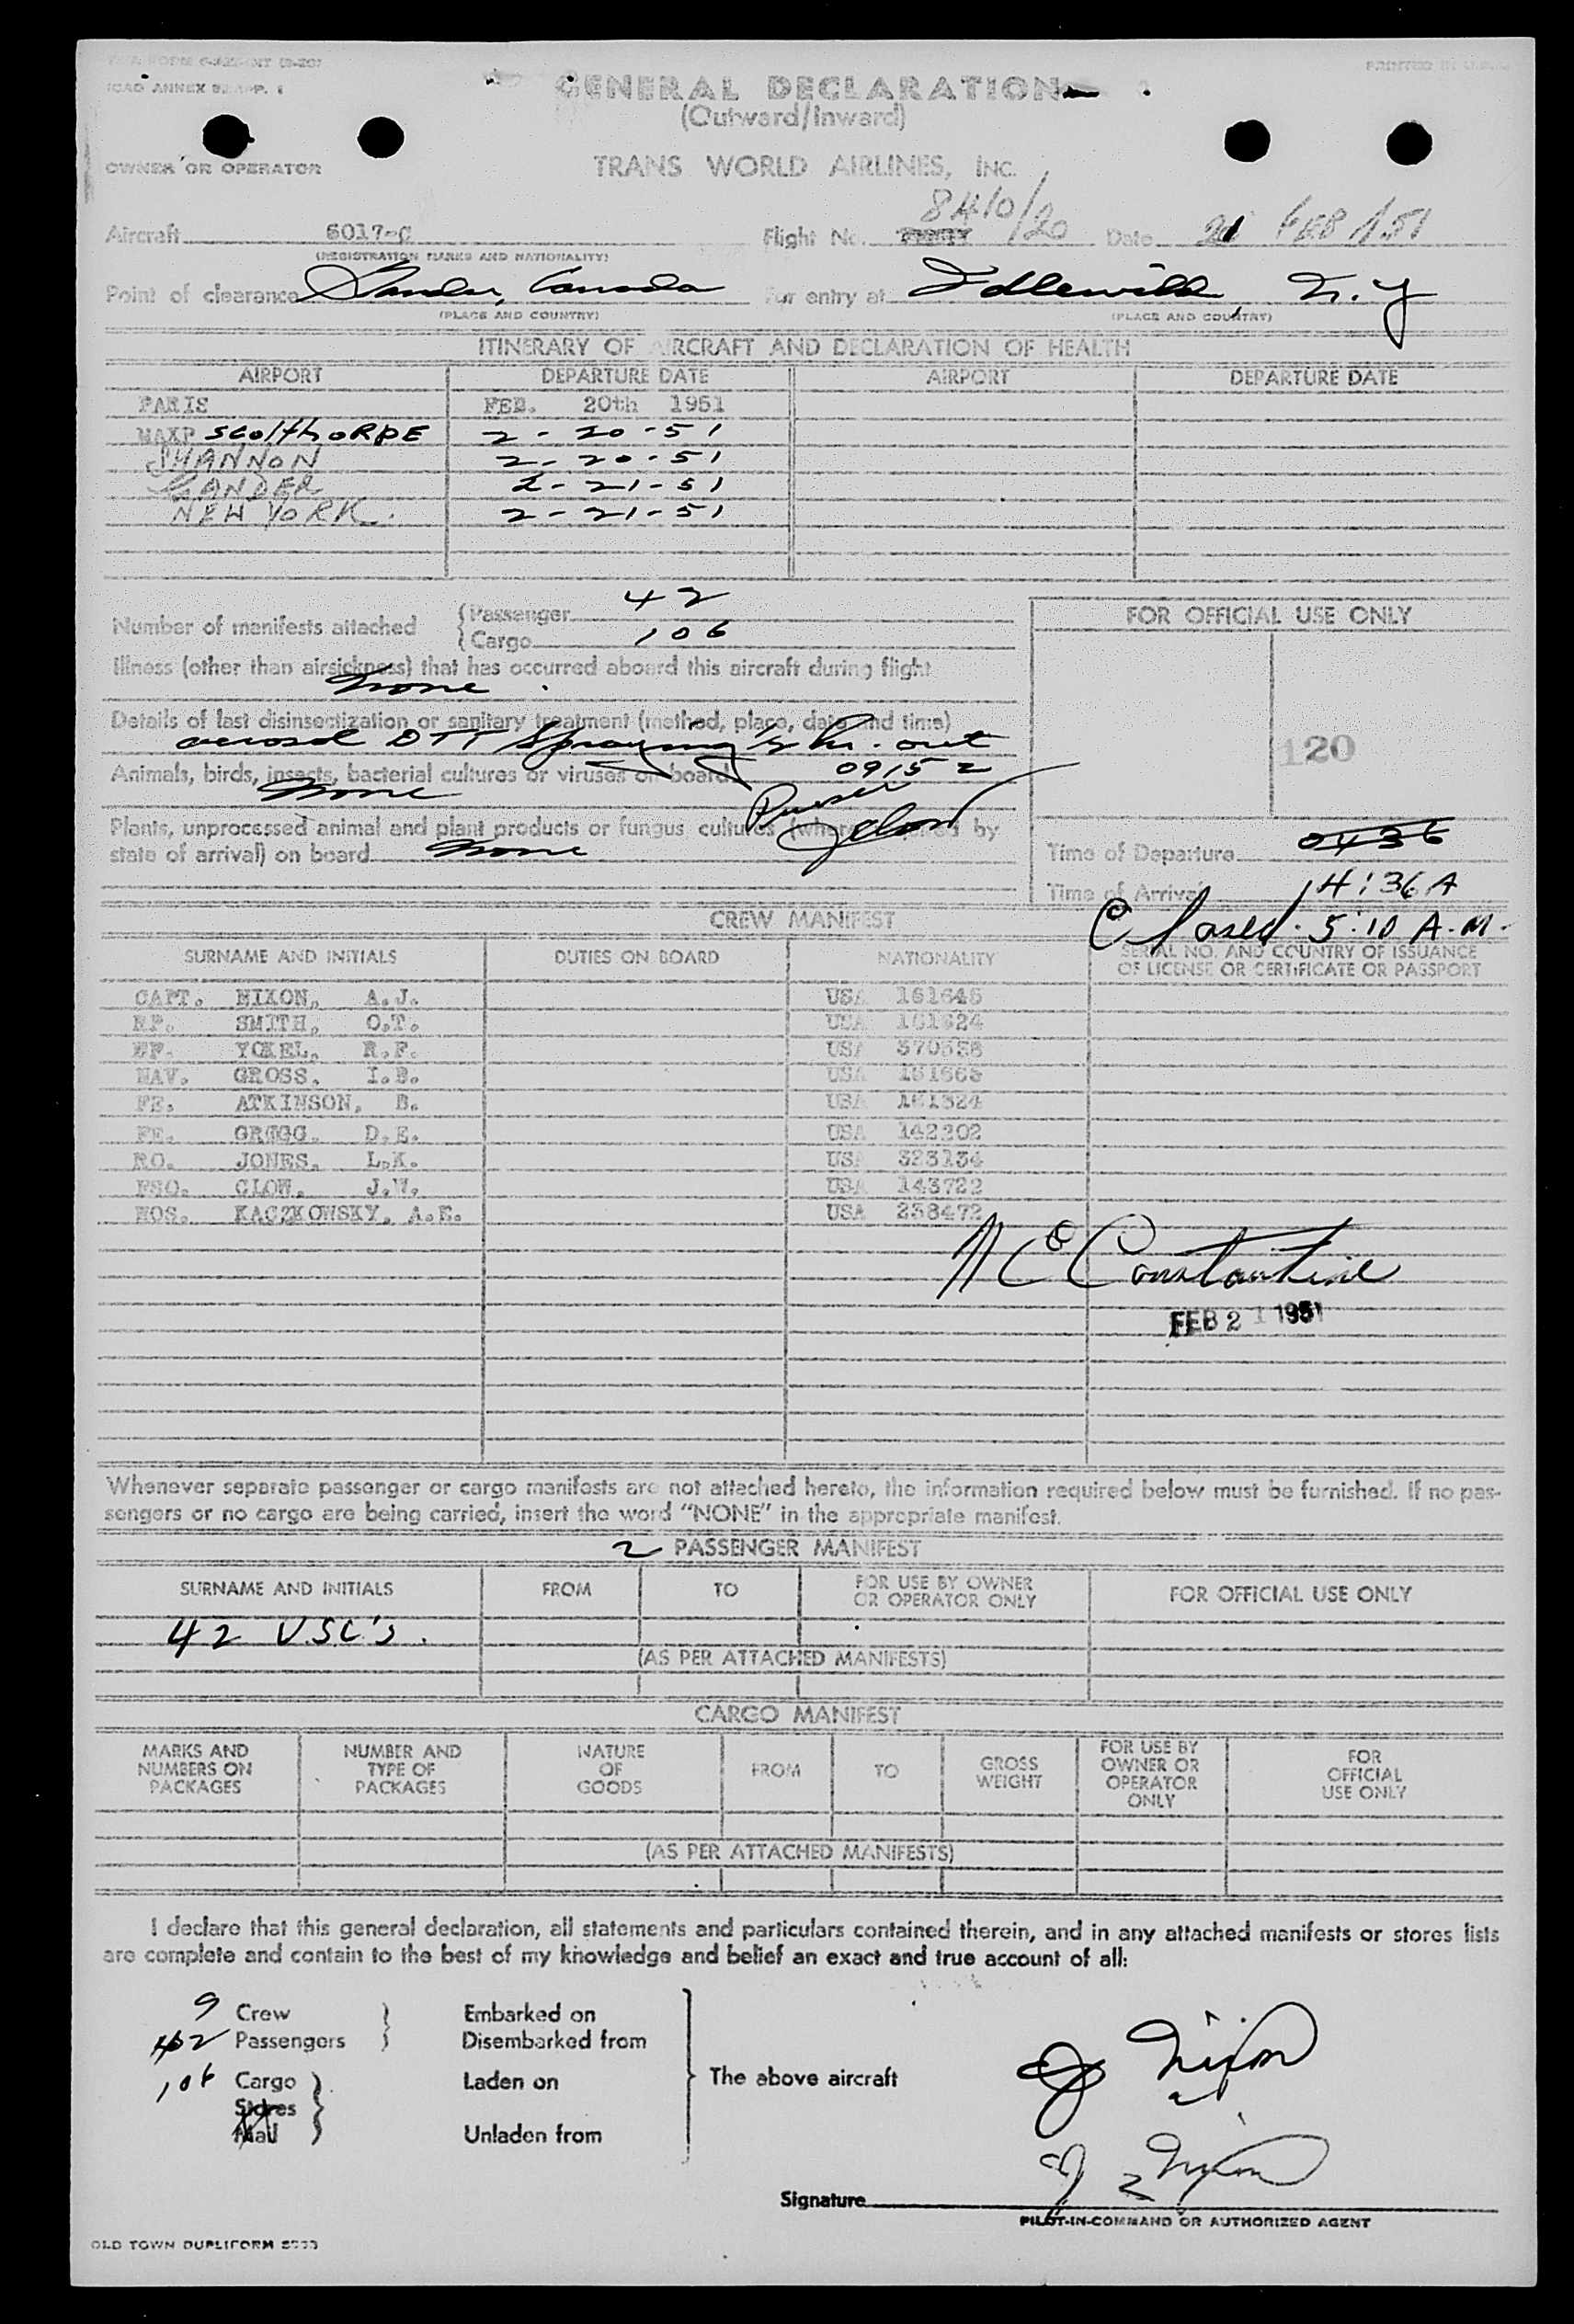 ICAO ANNEX 9. APP. 1
GENERAL DECLARATION
(Outward/Inward)
OWNER OR OPERATOR
TRANS WORLD AIRLINES, INC.
8410/20
Aircraft 6017-C Flight No. Date 21 FEB 1951
(REGISTRATION MARKS AND NATIONALITY)
Point of clearance Gander, Canada For entry at Idlewild, N.Y
(PLACE AND COUNTRY) (PLACE AND COUNTRY)
ITINERARY OF AIRCRAFT AND DECLARATION OF HEALTH
AIRPORT DEPARTURE DATE AIRPORT DEPARTURE DATE
PARIS FEB. 20th 1951
SCOLTHORPE 2-20-51
SHANNON 2-20-51
GANDER 2-21-51
NEW YORK. 2-21-51
Number of manifests attached
Passenger 42
Cargo 106
FOR OFFICIAL USE ONLY
Illness (other than airsickness) that has occurred aboard this aircraft during flight
none.
Details of last disinsectization or sanitary treatment (method, place, date and time)
aerosol DTT Spraying 1/2 hr. out
0915 Z
120
Animals, birds, insects, bacterial cultures or viruses on board
none
Purser
Plants, unprocessed animal and plant products or fungus cultures by
state of arrival) on board none
Time of Departure 0436
Time of Arrival 4:36 A
Closed. 5:10 A.M.
CREW MANIFEST
SURNAME AND INITIALS DUTIES ON BOARD NATIONALITY SERIAL NO. AND COUNTRY OF ISSUANCE
OF LICENSE OR CERTIFICATE OR PASSPORT
CAPT. NIXON, A.J. USA 161645
SMITH, O.T. USA 161624
R.F. USA
NAV. GROSS, I.B. USA
FE. ATKINSON, B. USA 161324
FE. GREGG, D.E. USA 142202
RO. JONES, L.K. USA 323134
FSO. CLOW, J.W. USA 143722
HOS. KACZKOWSKY, A.E. USA 238472
Constantine
FEB 21 1951
Whenever separate passenger or cargo manifests are not attached hereto, the information required below must be furnished. If no pas-
sengers or no cargo are being carried, insert the word "NONE" in the appropriate manifest.
2 PASSENGER MANIFEST
SURNAME AND INITIALS FROM TO FOR USE BY OWNER
OR OPERATOR ONLY FOR OFFICIAL USE ONLY
42 USC's.
(AS PER ATTACHED MANIFESTS)
CARGO MANIFEST
MARKS AND
NUMBERS ON
PACKAGES
NUMBER AND
TYPE OF
PACKAGES
NATURE
OF
GOODS
FROM
TO
GROSS
WEIGHT
FOR USE BY
OWNER OR
OPERATOR
ONLY
FOR
OFFICIAL
USE ONLY
(AS PER ATTACHED MANIFESTS)
I declare that this general declaration, all statements and particulars contained therein, and in any attached manifests or stores lists
are complete and contain to the best of my knowledge and belief an exact and true account of all:
9 Crew Embarked on
42 Passengers Disembarked from
106 Cargo Laden on The above aircraft
Stores
Mail Unladen from
AJ Nixon
AJ Nixon
Signature
PILOT-IN-COMMAND OR AUTHORIZED AGENT
OLD TOWN DUPLIFORM